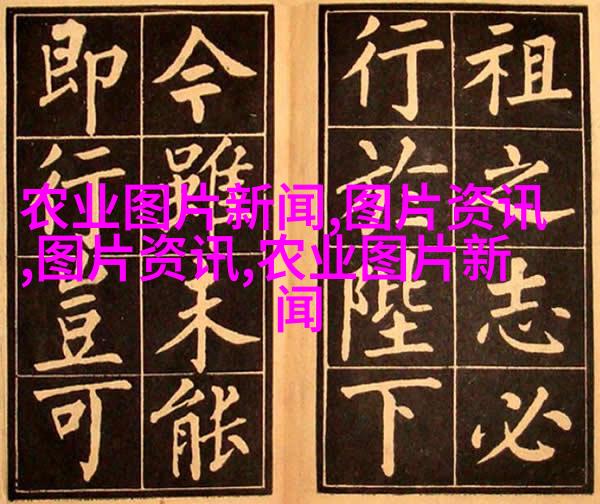 祖之志必
行於陛下
今雖未能
即行豈可
农业图片新闻,图片资讯
,图片资讯,农业图片新
闻